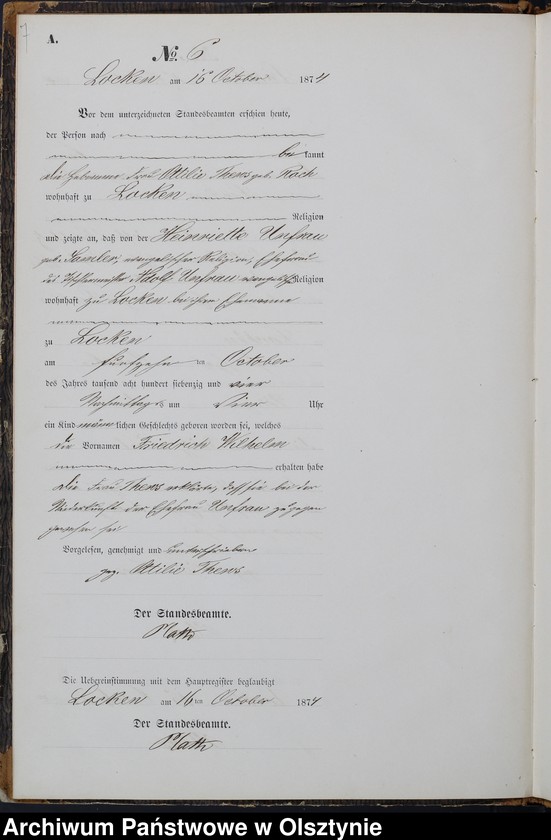 7
A.
No. 6
Locken am 16 October 1874
Vor dem unterzeichneten Standesbeamten erschien heute,
der Person nach
bekannt
die Hebamme Frau Ottilie Thews geb. Koch
wohnhaft zu Locken
Religion
und zeigte an, daß von der Heinriette Unfrau
geb. evangelischer Religion, Ehefrau
des Adolf Unfrau evangelischer Religion
wohnhaft zu Locken bei ihrem Ehemanne
zu Locken
am fünfzehn October
des Jahres tausend acht hundert siebenzig und vier
Nachmittags um Vier Uhr
ein Kind männlichen Geschlechts geboren worden sei, welches
die Vornamen Friedrich Wilhelm
erhalten habe
Die Frau Thews erklärte, daß sie bei der
Niederkunft der Ehefrau Unfrau zugegen
gewesen sei
Vorgelesen, genehmigt und unterschrieben
gez. Ottilie Thews
Der Standesbeamte.
Plath
Die Uebereinstimmung mit dem Hauptregister beglaubigt
Locken am 16ten October 1874
Der Standesbeamte.
Plath
Archiwum Państwowe w Olsztynie